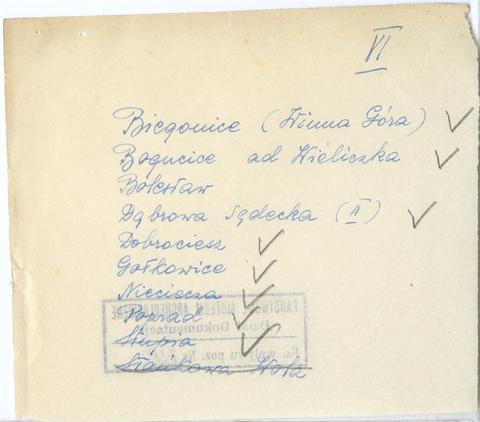 VI
Biegonice (Winna Góra)
Bogucice ad Wieliczka
Bolesław
Dąbrowa Sądecka (II)
Dobrociesz
Gołkowice
Nieciecza
Poprad
Słupia
Stankowa Wola
PAŃSTWOWE MUZEUM ARCHEOLOGICZNE
Dział Dokumentacji
Ks. wpływu poz. Nr.